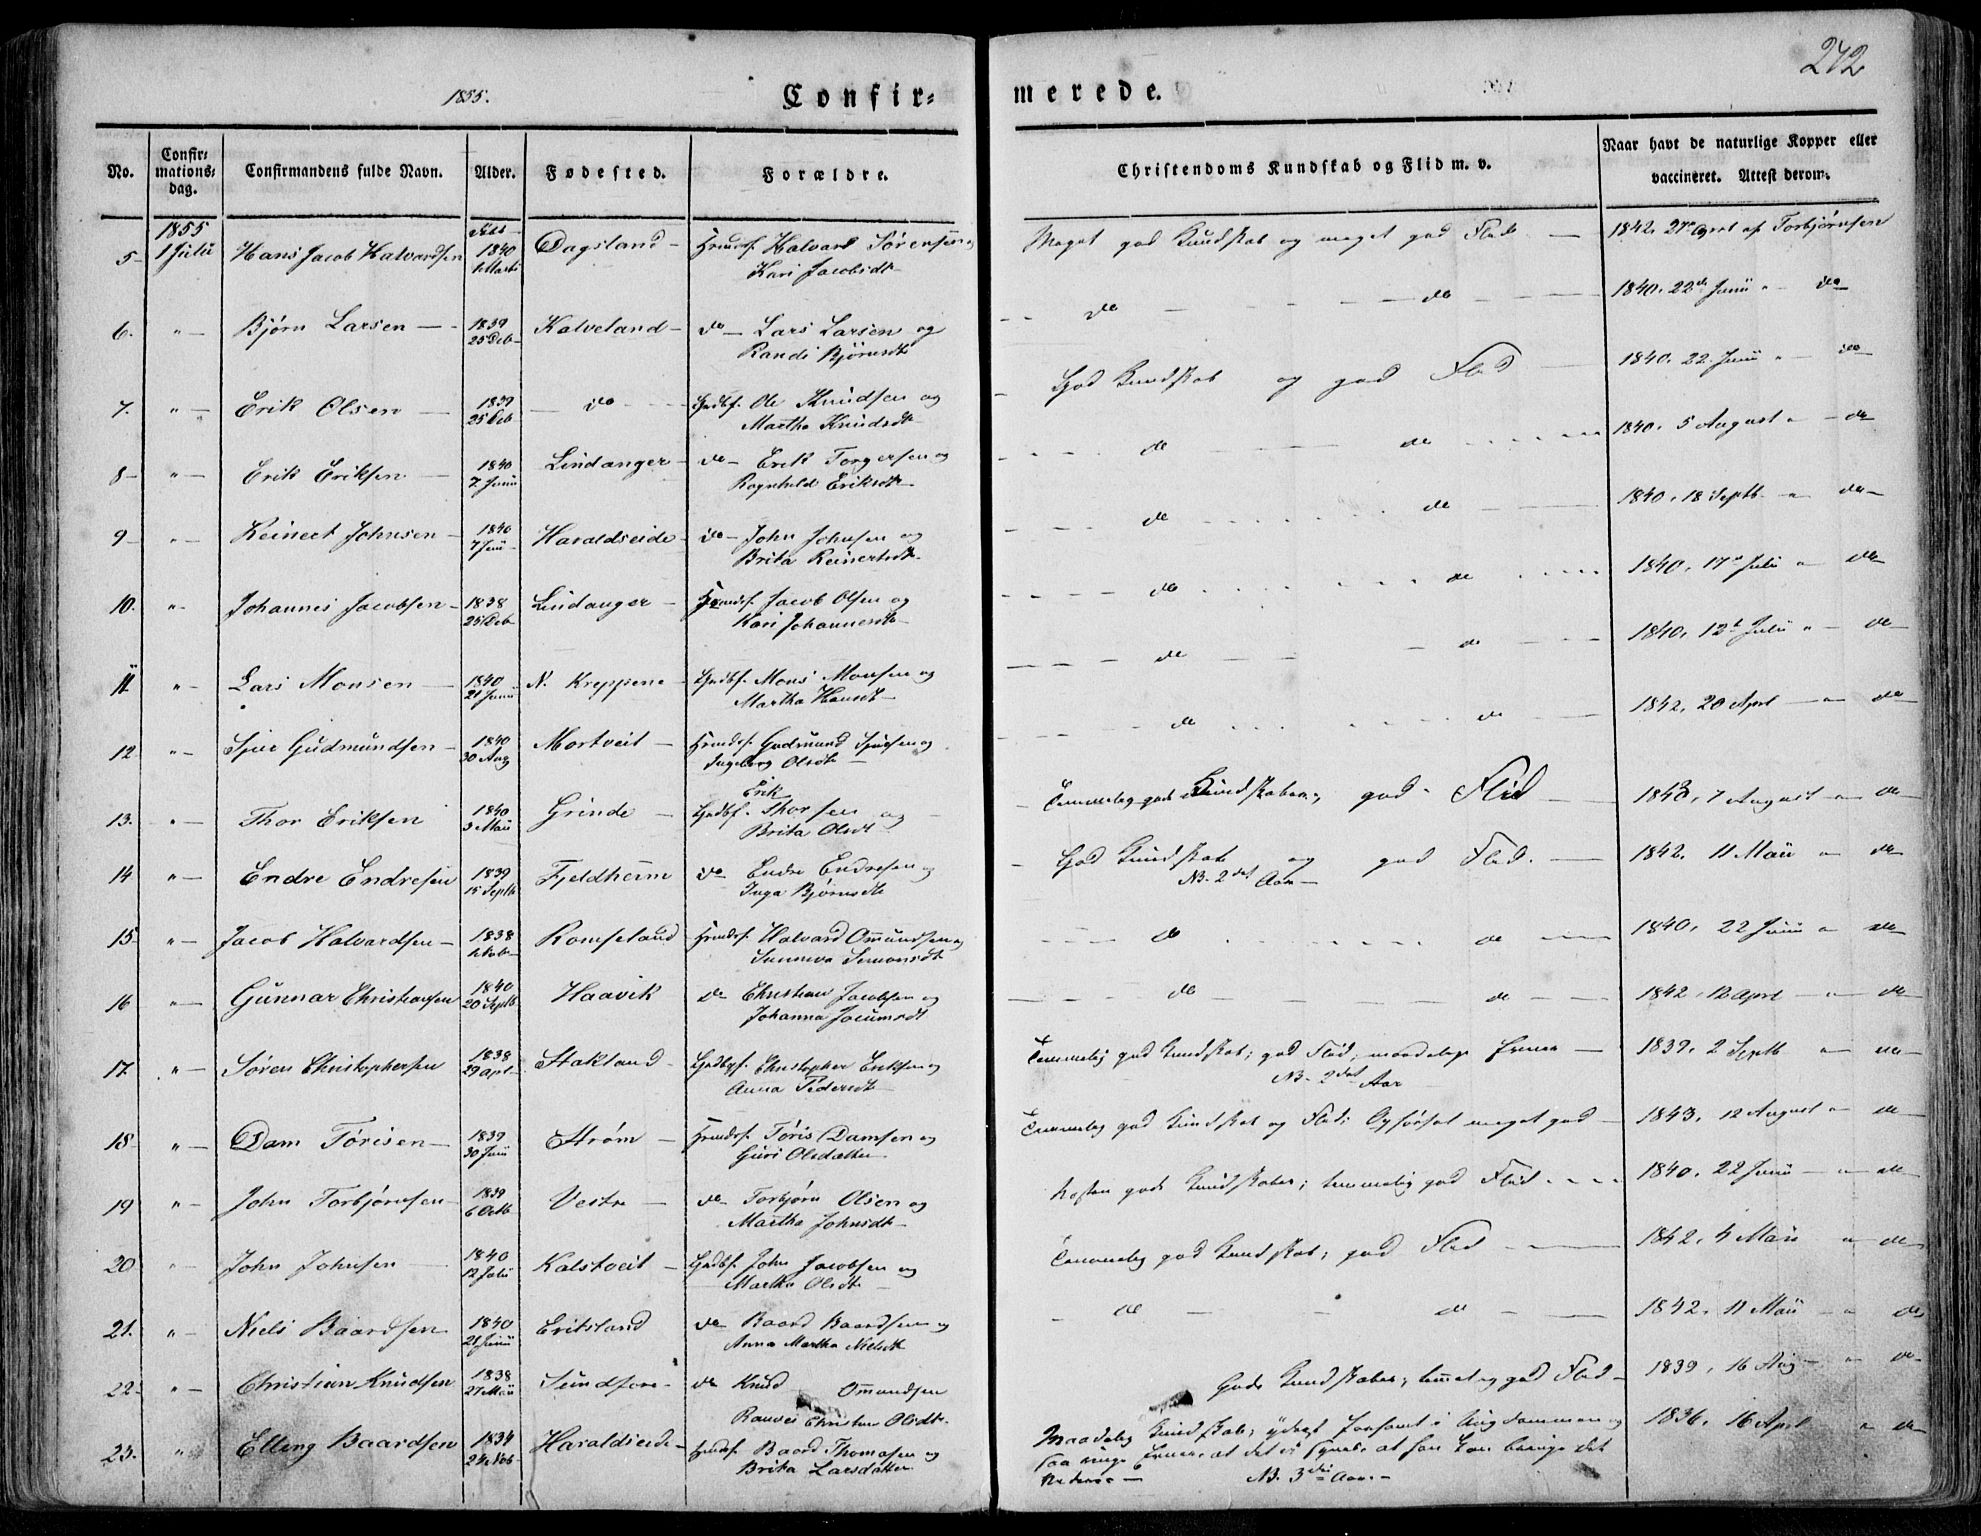 242
1855.
Confir=
merede.
No.
Confir=
mations=
dag.
Confirmandens fulde Navn.
Alder.
Fødested.
Forældre.
Christendoms Kundskab og Flid m. v.
Naar havt de naturlige Kopper eller
vaccineret. Attest derom.
5 1855 1 Julii Hans Jacob Halvardsen 1840 Marts Dagsland Huusmf. Halvard Sørensen og
Kari Jacobsdt
Meget god Kundskab og meget god Flid. 1842, 27 April af Torbjørnsen
6. " Bjørn Larsen 1839 25 Deb Kalveland do Lars Larsen og
Randi Bjørnsdt
do do 1840. 22 Junii " do
7. " Erik Olsen 1839 25 Deb do Grdbf. Ole Knudsen og
Martha Knudsdt
God Kundskab og god Flid 1840. 22. Junii " do
8 " Erik Eriksen 1840 7 Junii Lindanger do Erik Torgersen og
Ragnhild Eriksdt
do do 1840. 5 August " do
9 " Reinert Johnsen 1840 7 Junii Haraldseide do John Johnsen og
Brita Reinertsdt
do do 1840. 18 Septb. " do
10. " Johannes Jacobsen 1838 25 Deb Lindanger Huusmf. Jacob Olsen og
Kari Johannesdt
do do 1840. 17 Julii " do
11 " Lars Monsen 1840 21 Junii N. Kreppene Grdbf. Mons Monsen og
Martha Hansdt
do do 1840. 12 Julii " do
12. " Sjur Gudmundsen 1840 30 Aug Mortveit Huusmf. Gudmund Sjursen og
Ingeborg Olsdt
do do 1842. 20 Aprl " do
13. " Thor Eriksen 1840 3 Maii Grinde Grdbf. Erik Thorsen og
Brita Olsdt
Temmelig gode Kundskaber, god Flid 1840. 7 August " do
14 " Endre Endresen 1839 15 Septb Fjeldheim do Endre Endresen og
Inga Bjørnsdt
God Kundskab og god Flid.
NB. 2det Aar
1842. 11 Maii " do
15 " Jacob Halvardsen 1838 Nob Romseland Huusmf. Halvard Omundsen og
Sunneva Simonsdt
do do 1840. 22 Junii " do
16 " Gunnar Christiansen 1840 20 Septb Haavik do Christian Jacobsen og
Johanna
do do 1842. 12 Aprl " do
17. " Søren Christophersen 1838 29 Aprl Stakland Grdbgf. Christopher Eriksen og
Anna Pedersdt
Temmelig god Kundskab; god Flid; maadelige Evner
NB. 2det Aar
1839. 2 Septb " do
18 " Dam Tørisen 1839 30 Junii Strøm Huusmf. Tøris Damsen og
Guri Olsdatter
Temmelig god Kundskab og Flid; Opførsel meget god 1843. 12 August " do
19 " John Torbjørnsen 1839 6 Octb Vestre do Torbjørn Olsen og
Martha Johnsdt
Næsten gode Kundskaber; temmelig god Flid. 1840. 22 Junii " do
20 " John Johnsen 1840 12 Julii Kalstveit Grdbf. John Jacobsen og
Martha Olsdt
Temmelig god Kundskab; god Flid 1842. 4 Maii " do
21. " Niels Baardsen 1840 21 Junii Eritsland do Baard Baardsen og
Anna Martha Nielsdt
do do 1842. 11 Maii " do
22 " Christian Knudsen 1838 27 Maii Sundføre do Knud Omundsen
Christine Olsdt.
Gode Kundskaber; temmelig god Flid 1839. 16 Aug " do
23. " Elling Baardsen 1834 24 Nob Haraldseide Huusmf. Baard Thomasen og
Brita Larsdatter
Maadelig Kundskab; yderst forsømt i Ungdommen og
saa ringe Evner, at det ei synes at han kan bringe det
videre
NB. 3die Aar.
1836. 16 Aprl " do